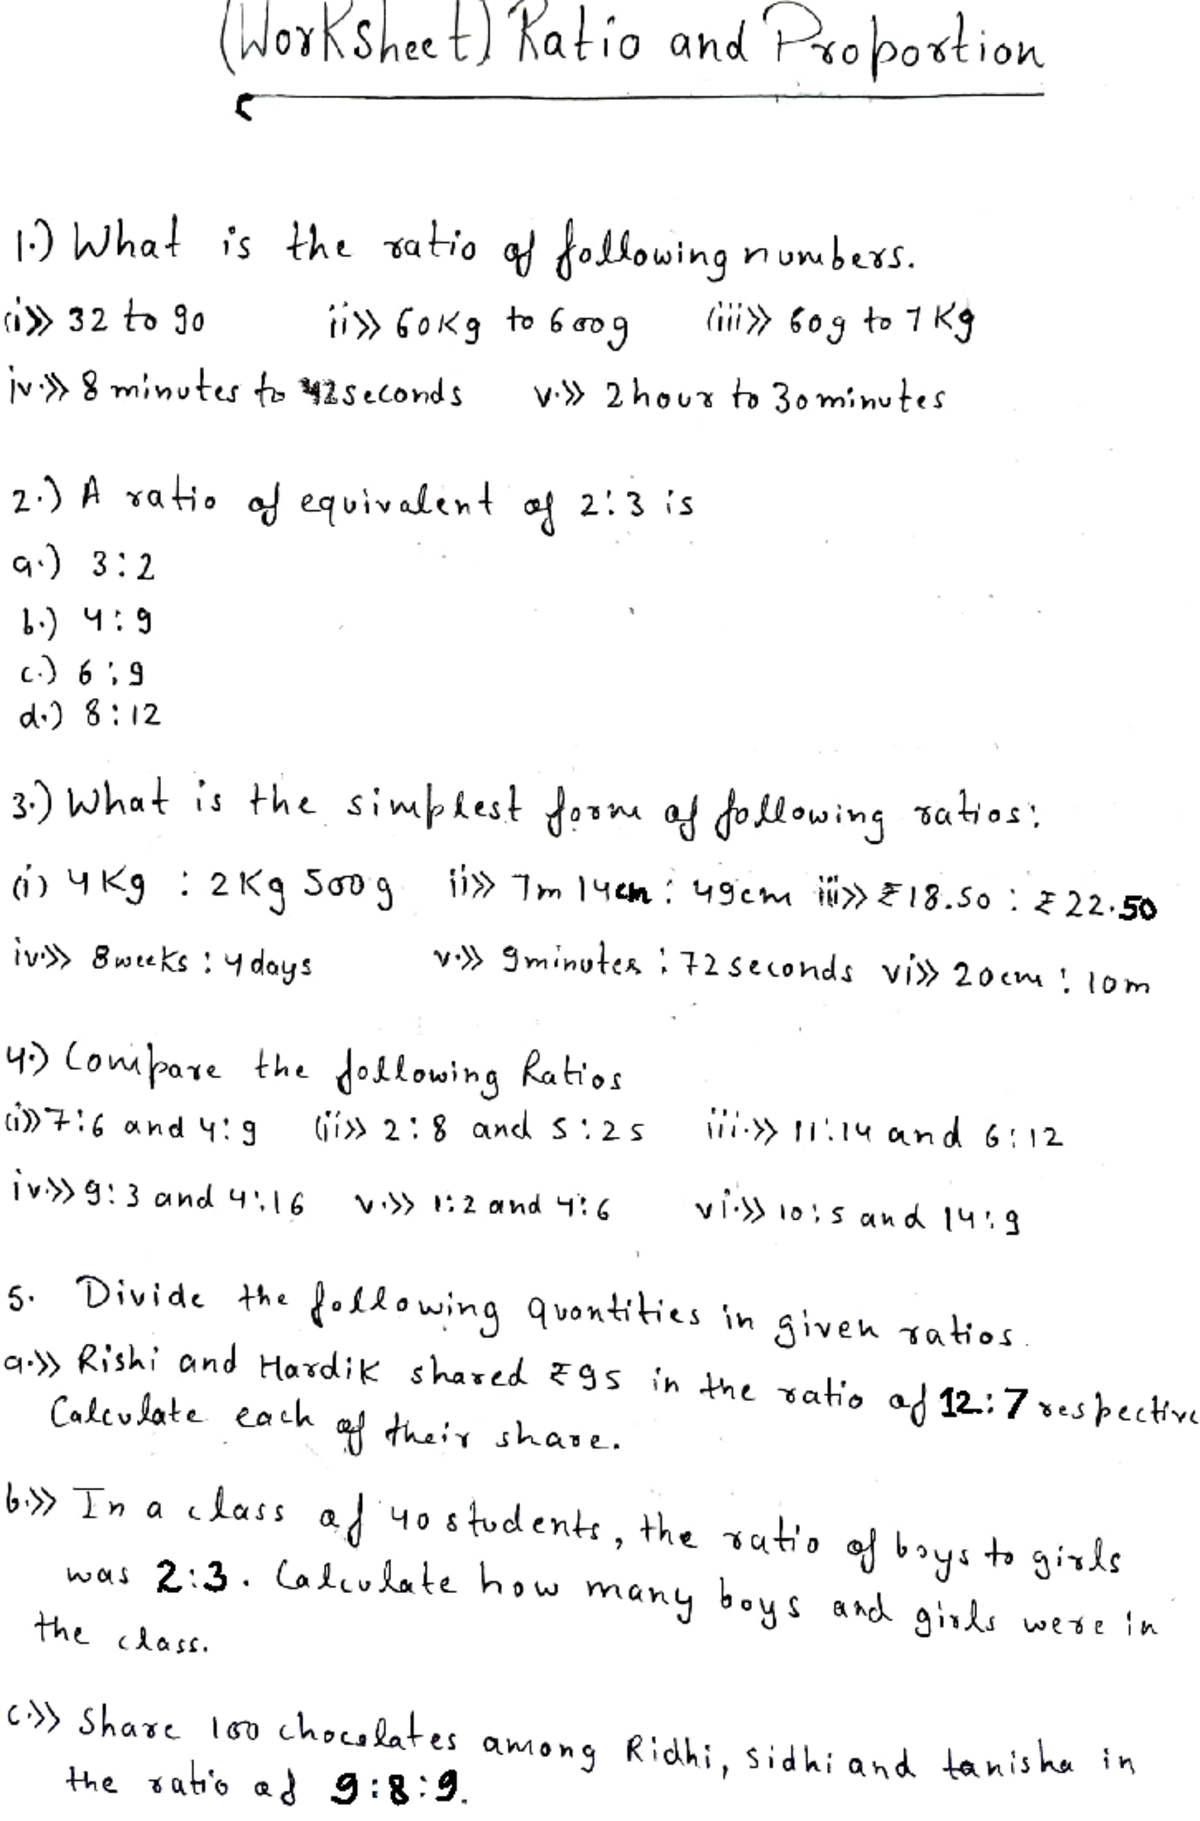 (Worksheet) Ratio and Proportion
1.) What is the ratio of following numbers.
(i>> 32 to 90 ii>> 60Kg to 600g (iii>> 60g to 7 Kg
iv.>> 8 minutes to 42 seconds v.>> 2 hour to 30 minutes
2.) A ratio of equivalent of 2:3 is
a.) 3:2
b.) 4:9
c.) 6:9
d.) 8:12
3.) What is the simplest form of following ratios:
(i) 4 Kg : 2 Kg 500 g ii>> 7m 14cm : 49cm iii>> ₹18.50 : ₹22.50
iv.>> 8 weeks : 4 days v.>> 9 minutes : 72 seconds vi>> 20cm : 10m
4.) Compare the following Ratios
(i>> 7:6 and 4:9 (ii>> 2:8 and 5:25 iii.>> 11:14 and 6:12
iv.>> 9:3 and 4:16 v.>> 1:2 and 4:6 vi.>> 10:5 and 14:9
5. Divide the following quantities in given ratios.
a.>> Rishi and Hardik shared ₹95 in the ratio of 12:7 respective
Calculate each of their share.
b.>> In a class of 40 students, the ratio of boys to girls
was 2:3. Calculate how many boys and girls were in
the class.
c.>> Share 100 chocolates among Ridhi, Sidhi and tanisha in
the ratio of 9:8:9.